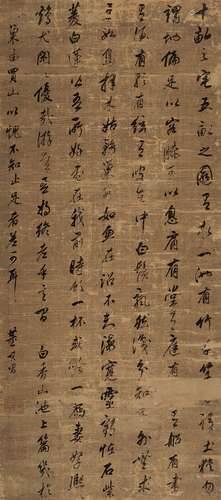 十畝之宅五畝之園有水一池有竹千竿勿謂土狹勿
謂地偏足以容膝可以息肩有堂有庭有船有書
有酒有歌有絃有叟在中白鬚飄然識分知足外無求
焉如鳥擇木姑務巢安如魚在沼不知海寬靈鶴怪石紫
菱白蓮皆吾所好盡在我前時飲一杯或吟一篇妻孥熙
雞犬閑閑優哉游哉吾將終老乎其間 白香山池上篇
巢由買山以愧不知止足者 董其昌